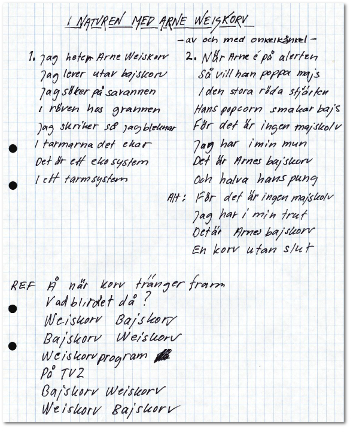 I NATUREN MED ARNE WEISKORV
– av och med
1. Jag heter Arne Weiskorv
Jag lever utav bajskorv
Jag söker på savannen
I röven hos grannen
Jag skriker så jag bleknar
I tarmarna det ekar
Det är ett ekosystem
I ett tarmsystem
2. När Arne é på alerten
Så vill han poppa majs
I den stora röda stjärten
Hans popcorn smakar bajs
För det är ingen majskolv
Jag har i min mun
Det är Arnes bajskorv
Och halva hans pung
Alt: För det är ingen majskolv
Jag har i min trut
Det är Arnes bajskorv
En korv utan slut
REF Å när korv tränger fram
Vad blir det då?
Weiskorv Bajskorv
Bajskorv Weiskorv
Weiskorv program
På TV2
Bajskorv Weiskorv
Weiskorv Bajskorv